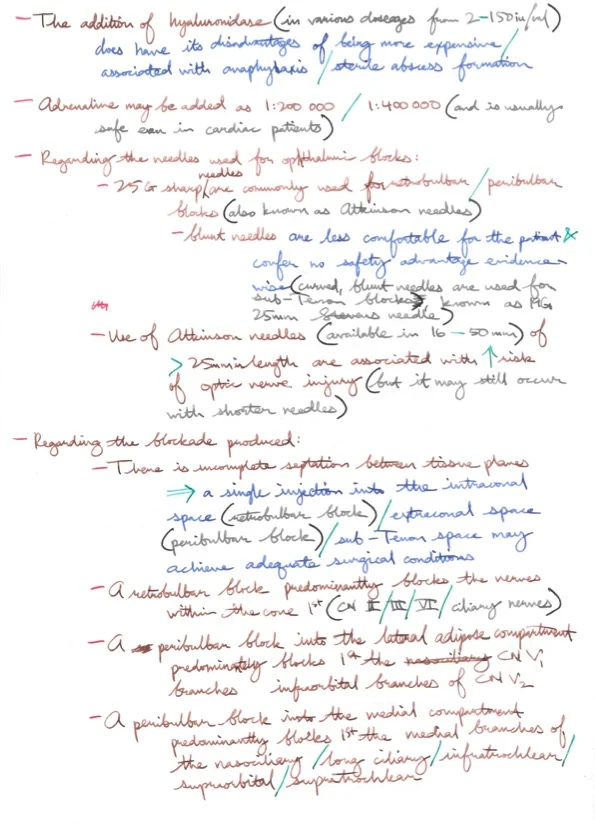 - The addition of hyaluronidase (in various doseages from 2-150 iu/ml)
does have its disadvantages of being more expensive/
associated with anaphylaxis / sterile abscess formation
- Adrenaline may be added as 1:200 000 / 1:400 000 (and is usually
safe even in cardiac patients)
- Regarding the needles used for ophthalmic blocks:
- 25G sharp needles are commonly used for retrobulbar / peribulbar
blocks (also known as Atkinson needles)
- blunt needles are less comfortable for the patient &
confer no safety advantage evidence-
wise (curved, blunt needles are used for
sub-Tenon blocks, known as
25mm Stevens needle)
- Use of Atkinson needles (available in 16 - 50 mm) of
> 25mm in length are associated with ↑ risk
of optic nerve injury (but it may still occur
with shorter needles)
- Regarding the blockade produced:
- There is incomplete septation between tissue planes
⇒ a single injection into the intraconal
space (retrobulbar block) / extraconal space
(peribulbar block) / sub-Tenon space may
achieve adequate surgical conditions
- A retrobulbar block predominantly blocks the nerves
within the cone 1st (CN II / III / VI / ciliary nerves)
- A peribulbar block into the lateral adipose compartment
predominately blocks 1st the nasociliary CN V1
branches infraorbital branches of CN V2
- A peribulbar block into the medial compartment
predominantly blocks 1st the medial branches of
the nasociliary / long ciliary / infratrochlear /
supraorbital / supratrochlear